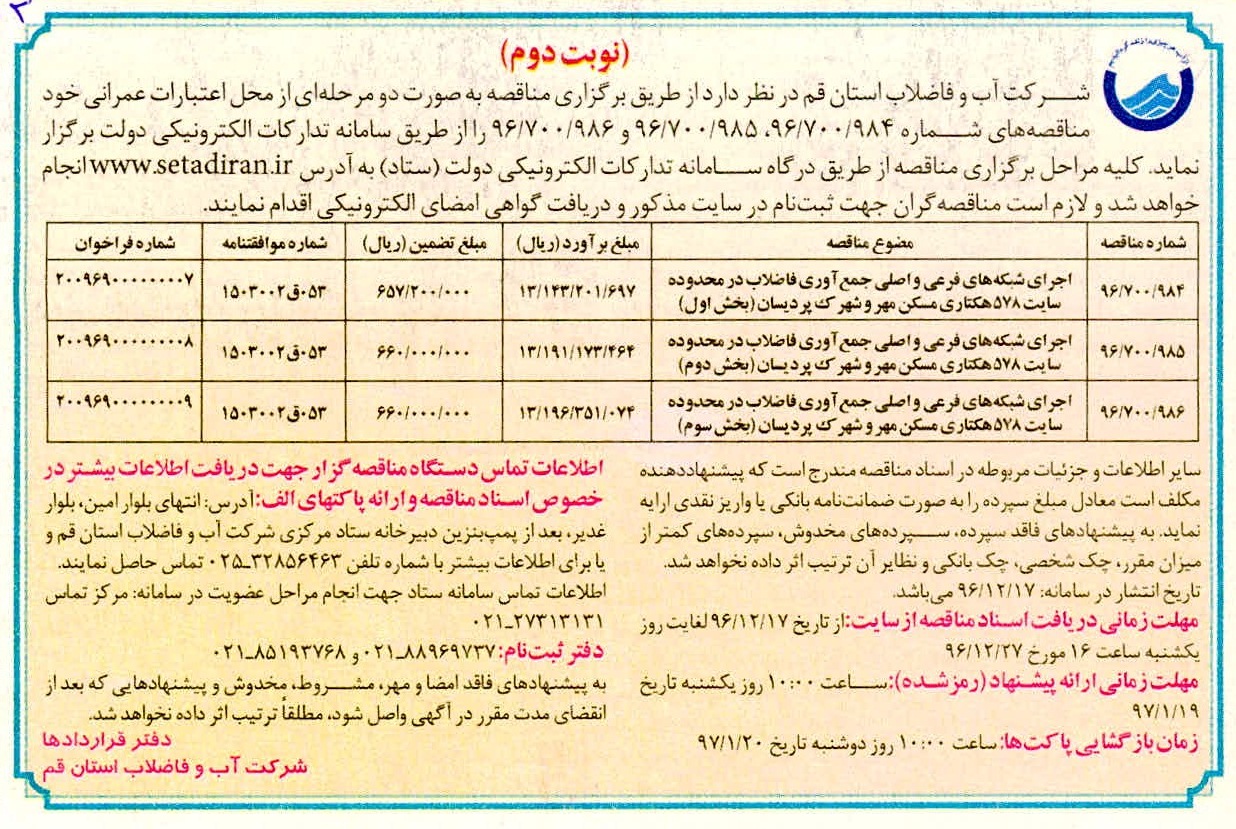 (نوبت دوم)
شرکت آب و فاضلاب استان قم در نظر دارد از طریق برگزاری مناقصه به صورت دو مرحله‌ای از محل اعتبارات عمرانی خود
مناقصه‌های شماره ۹۶/۷۰۰/۹۸۴، ۹۶/۷۰۰/۹۸۵ و ۹۶/۷۰۰/۹۸۶ را از طریق سامانه تدارکات الکترونیکی دولت برگزار
نماید. کلیه مراحل برگزاری مناقصه از طریق درگاه سامانه تدارکات الکترونیکی دولت (ستاد) به آدرس www.setadiran.ir انجام
خواهد شد و لازم است مناقصه‌گران جهت ثبت‌نام در سایت مذکور و دریافت گواهی امضای الکترونیکی اقدام نمایند.
شماره مناقصه مضوع مناقصه مبلغ برآورد (ریال) مبلغ تضمین (ریال) شماره موافقتنامه شماره فراخوان
۹۶/۷۰۰/۹۸۴ اجرای شبکه‌های فرعی و اصلی جمع‌آوری فاضلاب در محدوده
سایت ۵۷۸ هکتاری مسکن مهر و شهرک پردیسان (بخش اول) ۱۳/۱۴۳/۲۰۱/۶۹۷ ۶۵۷/۲۰۰/۰۰۰ ۰۵۳ق۱۵۰۳۰۰۲ ۲۰۰۹۶۹۰۰۰۰۰۰۰۰۰۷
۹۶/۷۰۰/۹۸۵ اجرای شبکه‌های فرعی و اصلی جمع‌آوری فاضلاب در محدوده
سایت ۵۷۸ هکتاری مسکن مهر و شهرک پردیسان (بخش دوم) ۱۳/۱۹۱/۱۷۳/۴۶۴ ۶۶۰/۰۰۰/۰۰۰ ۰۵۳ق۱۵۰۳۰۰۲ ۲۰۰۹۶۹۰۰۰۰۰۰۰۰۰۸
۹۶/۷۰۰/۹۸۶ اجرای شبکه‌های فرعی و اصلی جمع‌آوری فاضلاب در محدوده
سایت ۵۷۸ هکتاری مسکن مهر و شهرک پردیسان (بخش سوم) ۱۳/۱۹۶/۳۵۱/۰۷۴ ۶۶۰/۰۰۰/۰۰۰ ۰۵۳ق۱۵۰۳۰۰۲ ۲۰۰۹۶۹۰۰۰۰۰۰۰۰۰۹
سایر اطلاعات و جزئیات مربوطه در اسناد مناقصه مندرج است که پیشنهاددهنده
مکلف است معادل مبلغ سپرده را به صورت ضمانت‌نامه بانکی یا واریز نقدی ارایه
نماید. به پیشنهادهای فاقد سپرده، سپرده‌های مخدوش، سپرده‌های کمتر از
میزان مقرر، چک شخصی، چک بانکی و نظایر آن ترتیب اثر داده نخواهد شد.
تاریخ انتشار در سامانه: ۹۶/۱۲/۱۷ می‌باشد.
مهلت زمانی دریافت اسناد مناقصه از سایت: از تاریخ ۹۶/۱۲/۱۷ لغایت روز
یکشنبه ساعت ۱۶ مورخ ۹۶/۱۲/۲۷
مهلت زمانی ارائه پیشنهاد (رمز شده): ساعت ۱۰:۰۰ روز یکشنبه تاریخ
۹۷/۱/۱۹
زمان بازگشایی پاکت‌ها: ساعت ۱۰:۰۰ روز دوشنبه تاریخ ۹۷/۱/۲۰
اطلاعات تماس دستگاه مناقصه گزار جهت دریافت اطلاعات بیشتر در
خصوص اسناد مناقصه و ارائه پاکتهای الف: آدرس: انتهای بلوار امین، بلوار
غدیر، بعد از پمپ‌بنزین دبیرخانه ستاد مرکزی شرکت آب و فاضلاب استان قم و
یا برای اطلاعات بیشتر با شماره تلفن ۳۲۸۵۶۴۶۳-۰۲۵ تماس حاصل نمایند.
اطلاعات تماس سامانه ستاد جهت انجام مراحل عضویت در سامانه: مرکز تماس
۰۲۱-۲۷۳۱۳۱۳۱
دفتر ثبت‌نام: ۸۸۹۶۹۷۳۷-۰۲۱ و ۸۵۱۹۳۷۶۸-۰۲۱
به پیشنهادهای فاقد امضا و مهر، مشروط، مخدوش و پیشنهادهایی که بعد از
انقضای مدت مقرر در آگهی واصل شود، مطلقاً ترتیب اثر داده نخواهد شد.
دفتر قراردادها
شرکت آب و فاضلاب استان قم